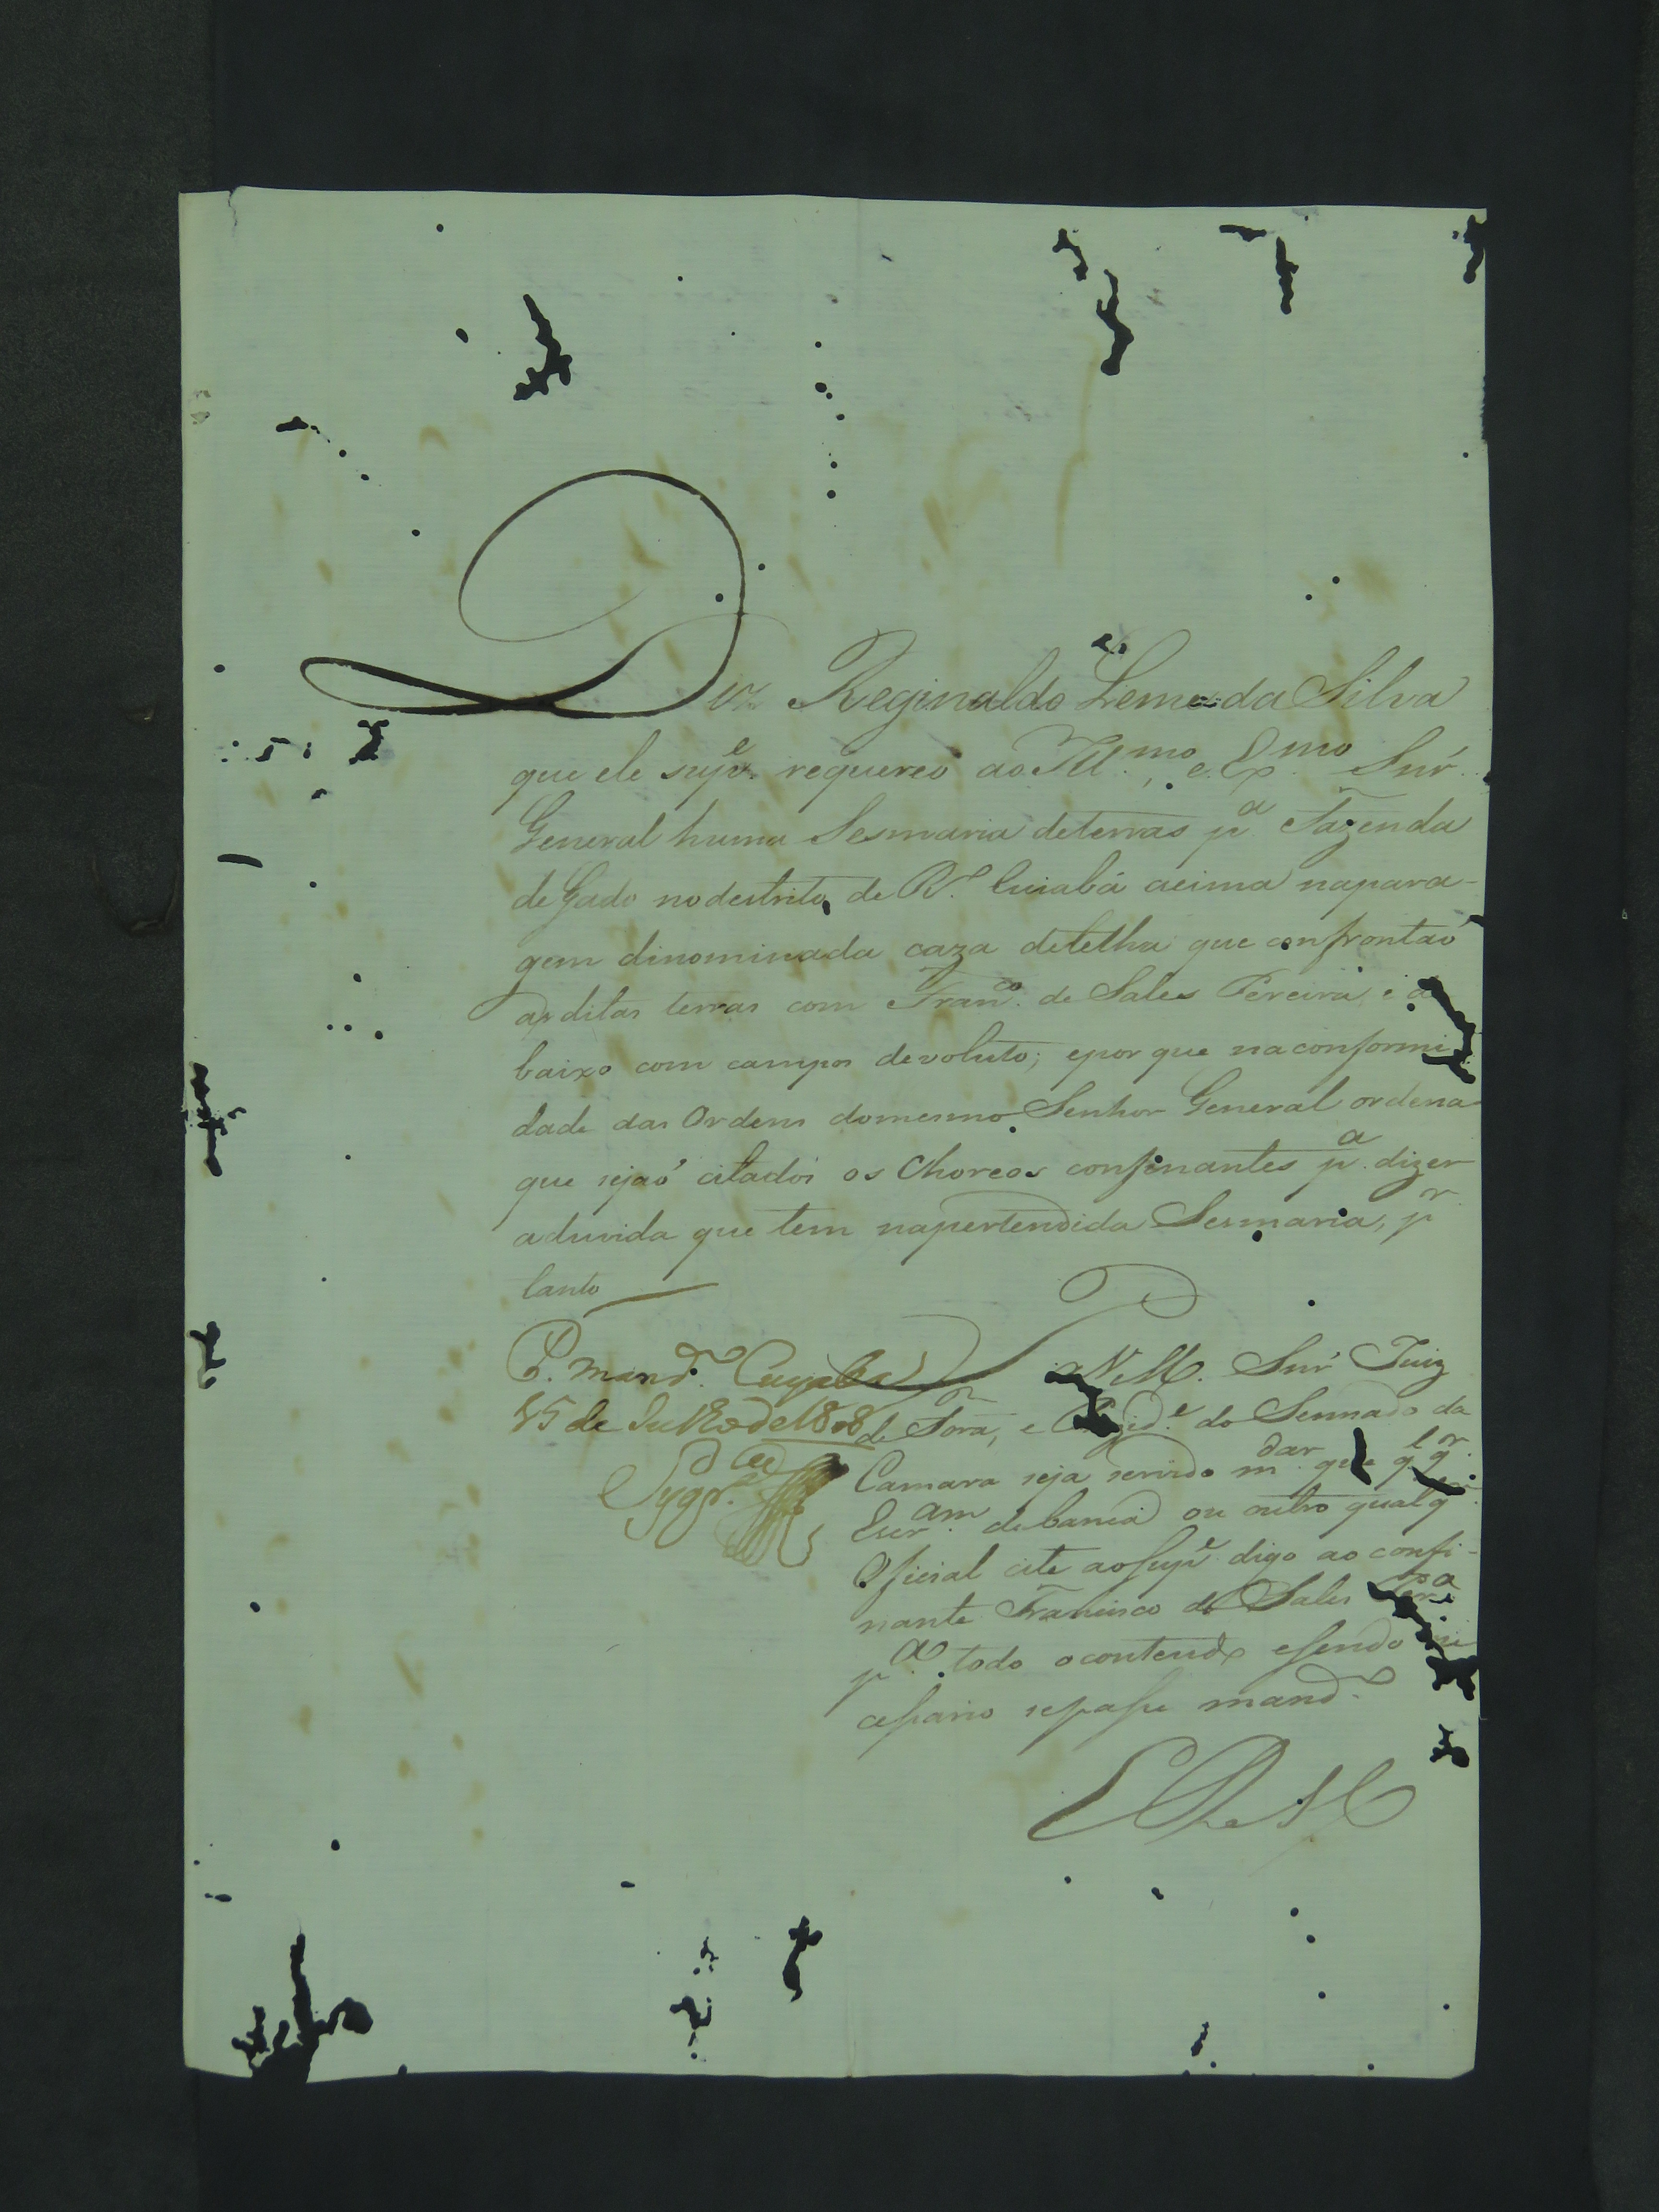 Diz Reginaldo Leme da Silva
que ele supe. requereo ao Ill.mo, e Ex.mo Snr.
General huma Sesmaria deterras pa. Fazenda
de Gado nodestrito de Rº. Cuiabá acima napara-
gem dinominada caza detelha que confrontaó
asditas terras com Franco. de Sales Pereira, e a
baixo com campos devoluto; epor que naconformi
dade das Ordens domesmo Senhor General ordena
que sejaó citados os Choreos confinantes pa. dizer
aduvida que tem napertendida Sesmaria, pr.
tanto
P. mand.º Cuyaba
15 de Julho de 1808
P. a V. M. Snr Juiz
de Fora, e Prezid.e do Sennado da
Camara seja servido mdar. que qlqr.
Escram. debanca ou outro qualqr.
Oficial cite aosupe digo ao confi-
nante Francisco de Sales Pera.
pa. todo ocontendo esendo ne
cessario sepasse mand.º
E R M